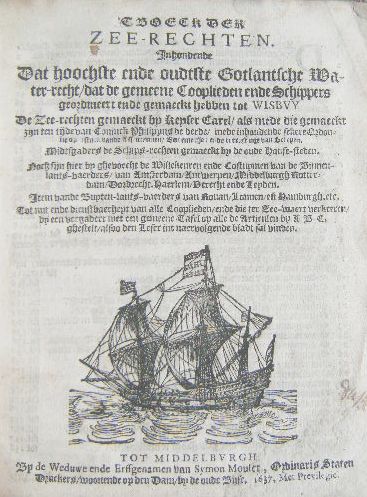 TBOECK DER
ZEE-RECHTEN.
Inhoudende
Dat hoochste ende oudtste Gotlantsche Wa-
ter-recht/dat de gemeene Cooplieden ende Schippers
geordineert ende gemaeckt hebben tot WISBVY
De Zee-rechten gemaeckt by Keyser Carel/als mede die gemaeckt
zijn ten tijde van Coninck Philippus de derde/mede inhoudende
Midtsgaders de Schips-rechten gemaeckt by de oude Hanse-steden.
Noch zijn hier by ghevoecht de Willekeuren ende Costuymen van de Binnen-
lants-vaerders/van Amsterdam/Antwerpen/Middelburgh/Rotter-
dam/Dordrecht/Haerlem/Utrecht ende Leyden.
Item vande Buyten-lants-vaerders van Rouan/Hamburgh.etc.
Tot nut ende dienstbaerheyt van alle Cooplieden/ende die ter Zee-waert verkeeren/
by een vergadert met een gemeene Tafel op alle de Articulen by A.B.C.
ghestelt/alsoo den Leser int naervolgende bladt sal vinden.
TOT MIDDELBVRGH.
By de Weduwe ende Erffgenamen van Symon Moulert, Ordinaris Staten
Druckers/woonende op den Dam/by de oude Byse. 1637. Met Previlegie.